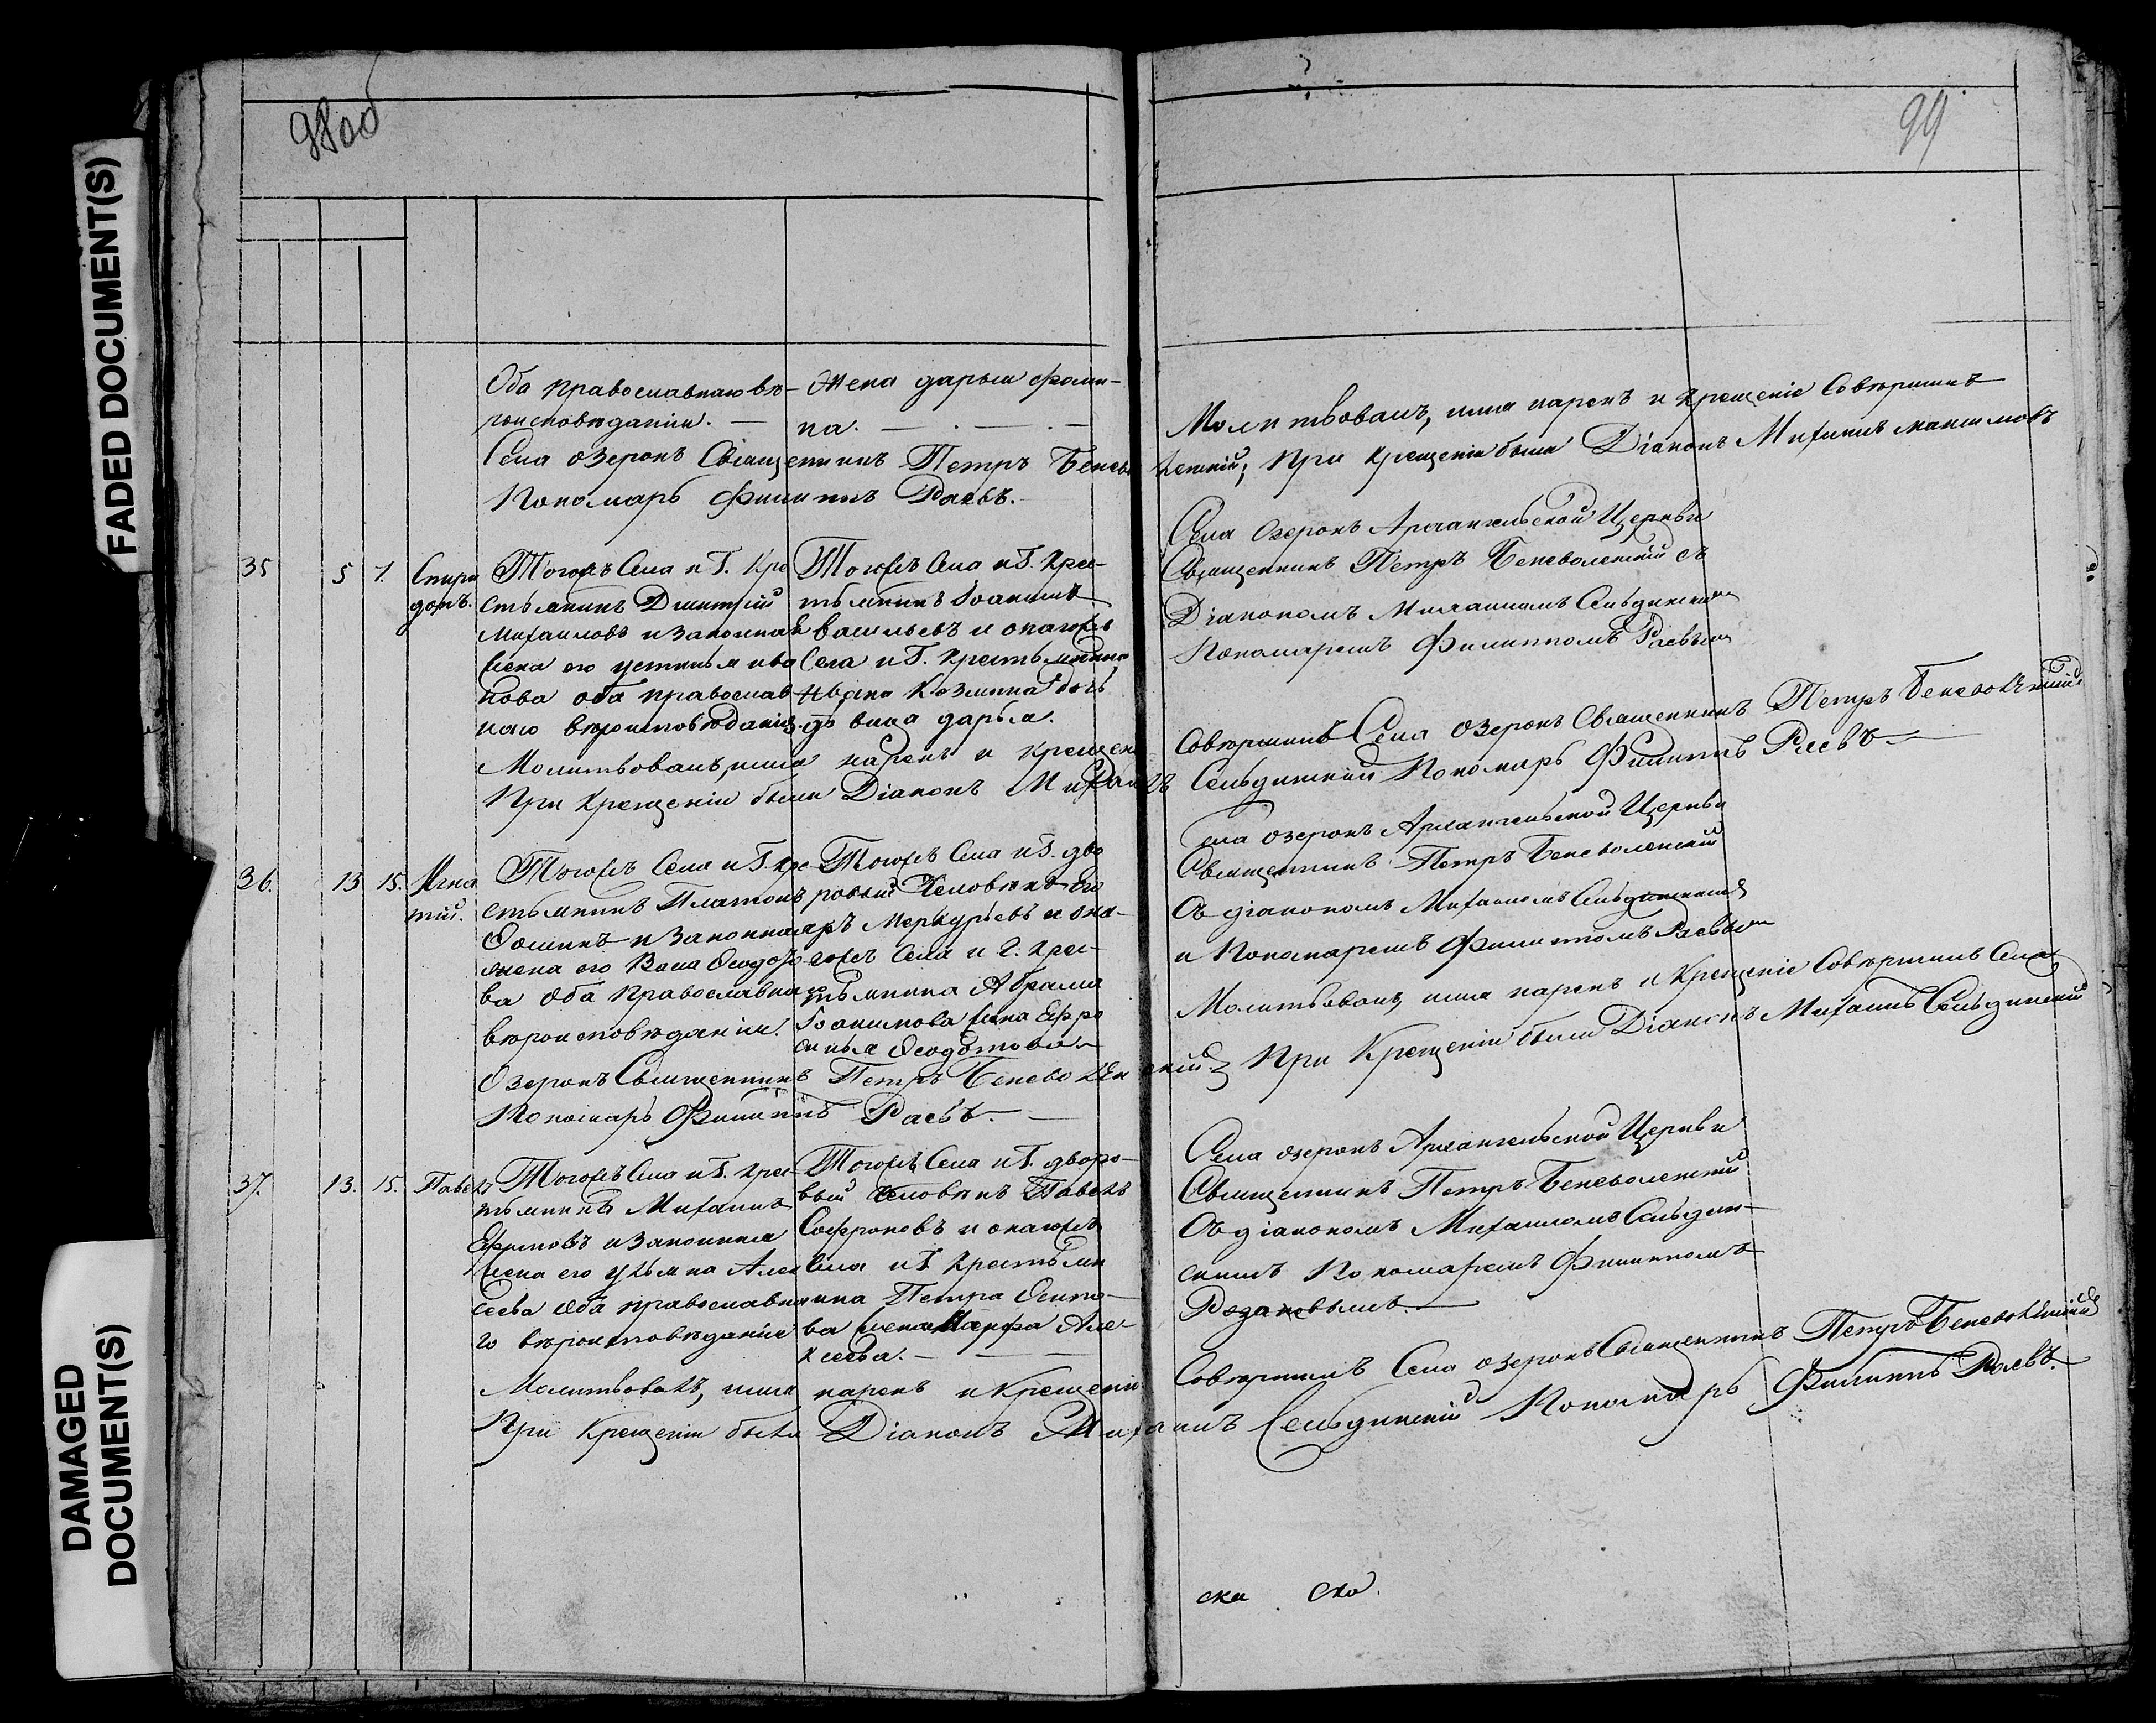 FADED DOCUMENT(S)
DAMAGED
DOCUMENT(S)
99
Оба православнаго вѣ-
роисповѣданія.
Жена дарья Фоми-
на.
Молитвовалъ, имя нарекъ и крещеніе Совершилъ
Села Озерокъ Священникъ Петръ Беневоленскій; При крещеніи были Діаконъ Михаилъ
Пономарь Филиппъ Раевъ.
35
5
7.
Спири
донъ.
Тогожъ Села и Г. Кре
стьянинъ Дмитрій
Михаиловъ и законная
жена его устинья ива
нова оба православ
наго вѣроисповѣданія.
Тогожъ Села и Г. Крес-
тьянинъ Іоакимъ
Васильевъ и онагожъ
Села и Г. Крестьянина
Ивана Козмина дочь
дѣвица дарья.
Села Озерокъ Архангельской Церкви
Священникъ Петръ Беневоленскій съ
Діакономъ Михаиломъ Сельдинскимъ
Пономаремъ Филиппомъ Раевымъ
Молитвовалъ, имя нарекъ и крещеніе Совершилъ Села Озерокъ Священникъ Петръ Беневоленскій
При Крещеніи были Діаконъ Михаилъ Сельдинскій Пономарь Филиппъ Раевъ
36.
13
15.
Игна
тій.
Тогожъ Села и Г. Кре
стьянинъ Платонъ
Ѳоминъ и Законная
жена его Васса Ѳедоро
ва Оба Православнаго
вѣроисповѣданія.
Тогожъ Села и Г. дво
ровый Человѣкъ
Меркурьевъ и она-
гожъ Села и Г. Крес-
тьянина Абрама
Іоакимова жена Ефро
синья Ѳеодотова
Села озерокъ Архангельской Церкви
Священникъ Петръ Беневоленскій
Съ діакономъ Михаиломъ Сельдинскимъ
и Пономаремъ Филиппомъ Раевымъ
Молитвовалъ, имя нарекъ и Крещеніе Совершилъ Села
Озерокъ Священникъ Петръ Беневоленскій При Крещеніи были Діаконъ Михаилъ Сельдинскій
Пономарь Филиппъ Раевъ.
37.
13.
15.
Павелъ
Тогожъ Села и Г. Крес-
тьянинъ Михаилъ
Ефимовъ и Законная
жена его ульяна Алек
сеева Оба православна
го вѣроисповѣданія
Тогожъ Села и Г. дворо-
вый Человѣкъ Павелъ
Софроновъ и онагожъ
Села и Г. Крестьян
ина Петра Осипо-
ва жена Марфа Але-
ксеева.
Села озерокъ Архангельской Церкви
Священникъ Петръ Беневоленскій
Съ діакономъ Михаиломъ Сельдин-
скимъ Пономаремъ Филиппомъ
Розановымъ.
Молитвовалъ, имя нарекъ и Крещеніе Совершилъ Села озерокъ Священникъ Петръ Беневоленскій
При Крещеніи были Діаконъ Михаилъ Сельдинскій Пономарь Филиппъ Раевъ.
ска ско.